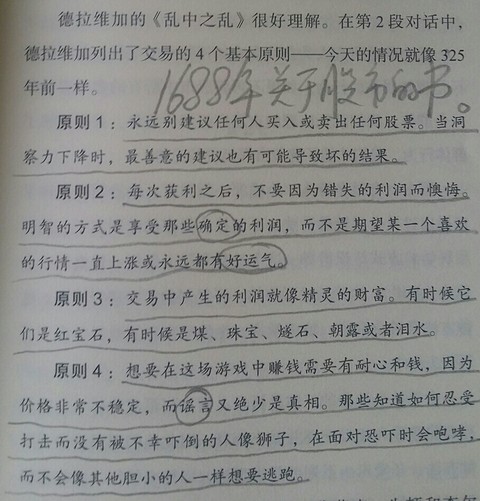 德拉维加的《乱中之乱》很好理解。在第2段对话中，
德拉维加列出了交易的4个基本原则——今天的情况就像325
年前一样。
1688年关于股市的书。
原则1：永远别建议任何人买入或卖出任何股票。当洞
察力下降时，最善意的建议也有可能导致坏的结果。
原则2：每次获利之后，不要因为错失的利润而懊悔。
明智的方式是享受那些确定的利润，而不是期望某一个喜欢
的行情一直上涨或永远都有好运气。
原则3：交易中产生的利润就像精灵的财富。有时候它
们是红宝石，有时候是煤、珠宝、燧石、朝露或者泪水。
原则4：想要在这场游戏中赚钱需要有耐心和钱，因为
价格非常不稳定，而谣言又绝少是真相。那些知道如何忍受
打击而没有被不幸吓倒的人像狮子，在面对恐吓时会咆哮，
而不会像其他胆小的人一样想要逃跑。